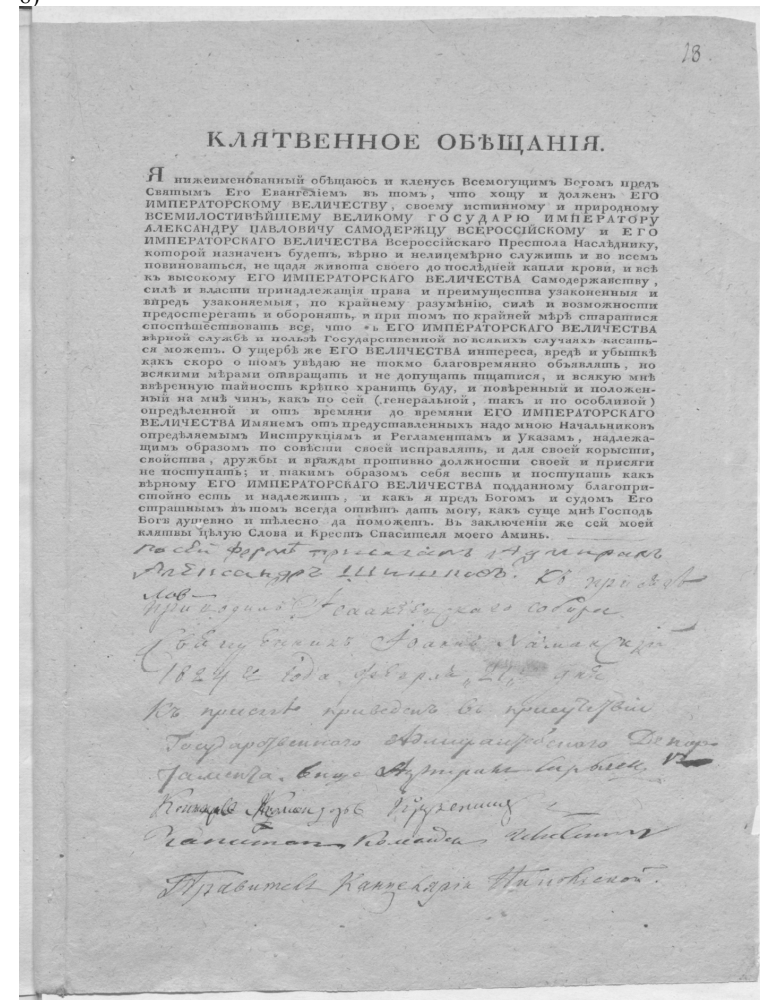 б)
18.
КЛЯТВЕННОЕ ОБѢЩАНІЯ.
Я нижеименованный обѣщаюсь и кленусь Всемогущимъ Богомъ предъ
Святымъ Его Евангеліемъ въ томъ, что хощу и долженъ ЕГО
ИМПЕРАТОРСКОМУ ВЕЛИЧЕСТВУ, своему истинному и природному
ВСЕМИЛОСТИВѢЙШЕМУ ВЕЛИКОМУ ГОСУДАРЮ ИМПЕРАТОРУ
АЛЕКСАНДРУ ПАВЛОВИЧУ САМОДЕРЖЦУ ВСЕРОССІЙСКОМУ и ЕГО
ИМПЕРАТОРСКАГО ВЕЛИЧЕСТВА Всероссійскаго Престола Наслѣднику,
которой назначенъ будетъ, вѣрно и нелицемѣрно служить и во всемъ
повиноваться, не щадя живота своего до послѣдней капли крови, и всѣ
къ высокому ЕГО ИМПЕРАТОРСКАГО ВЕЛИЧЕСТВА Самодержавству,
силѣ и власти принадлежащія права и преимущества узаконенныя и
впредь узаконяемыя, по крайнему разумѣнію, силѣ и возможности
предостерегать и оборонять, и при томъ по крайней мѣрѣ старатися
споспѣшествовать все, что ъ ЕГО ИМПЕРАТОРСКАГО ВЕЛИЧЕСТВА
вѣрной службѣ и пользѣ Государственной во всякихъ случаяхъ касать-
ся можетъ. О ущербѣ же ЕГО ВЕЛИЧЕСТВА интереса, вредѣ и убыткѣ
какъ скоро о томъ увѣдаю не токмо благовремянно объявлять, но
всякими мѣрами отвращать и не допущать тщатися, и всякую мнѣ
ввѣренную тайность крѣпко хранить буду, и повѣренный и положен-
ный на мнѣ чинъ, какъ по сей (генеральной, такъ и по особливой)
опредѣленной и отъ времяни до времяни ЕГО ИМПЕРАТОРСКАГО
ВЕЛИЧЕСТВА Имянемъ отъ предуставленныхъ надо мною Начальниковъ
опредѣляемымъ Инструкціямъ и Регламентамъ и Указамъ, надлежа-
щимъ образомъ по совѣсти своей исправлять, и для своей корысти,
свойства, дружбы и вражды противно должности своей и присяги
не поступать; и такимъ образомъ себя весть и поступать какъ
вѣрному ЕГО ИМПЕРАТОРСКАГО ВЕЛИЧЕСТВА подданному благопри-
стойно есть и надлежитъ, и какъ я предъ Богомъ и судомъ Его
страшнымъ въ томъ всегда отвѣтъ дать могу, какъ суще мнѣ Господь
Богъ душевно и тѣлесно да поможетъ. Въ заключеніи же сей моей
клятвы цѣлую Слова и Крестъ Спасителя моего Аминь.
по сей формѣ присягалъ Адмиралъ
Александръ Шишковъ. Къ присягѣ
приводилъ Исаакіевскаго собора
Священникъ Іоаннъ
1824 года февраля дня
Къ присягѣ приведенъ въ присутствіи
Государственного Адмиралтейского Депар-
тамента. вице Адмиралъ
Капитанъ Командоръ
Правитель Канцеляріи